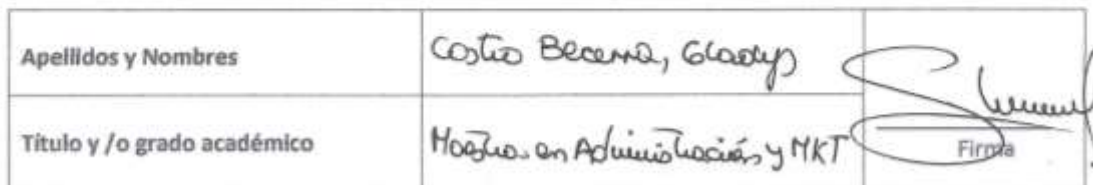 Apellidos y Nombres
Castro Becerra, Gladys
Título y /o grado académico
Maestra en Administración y MKT
Firma